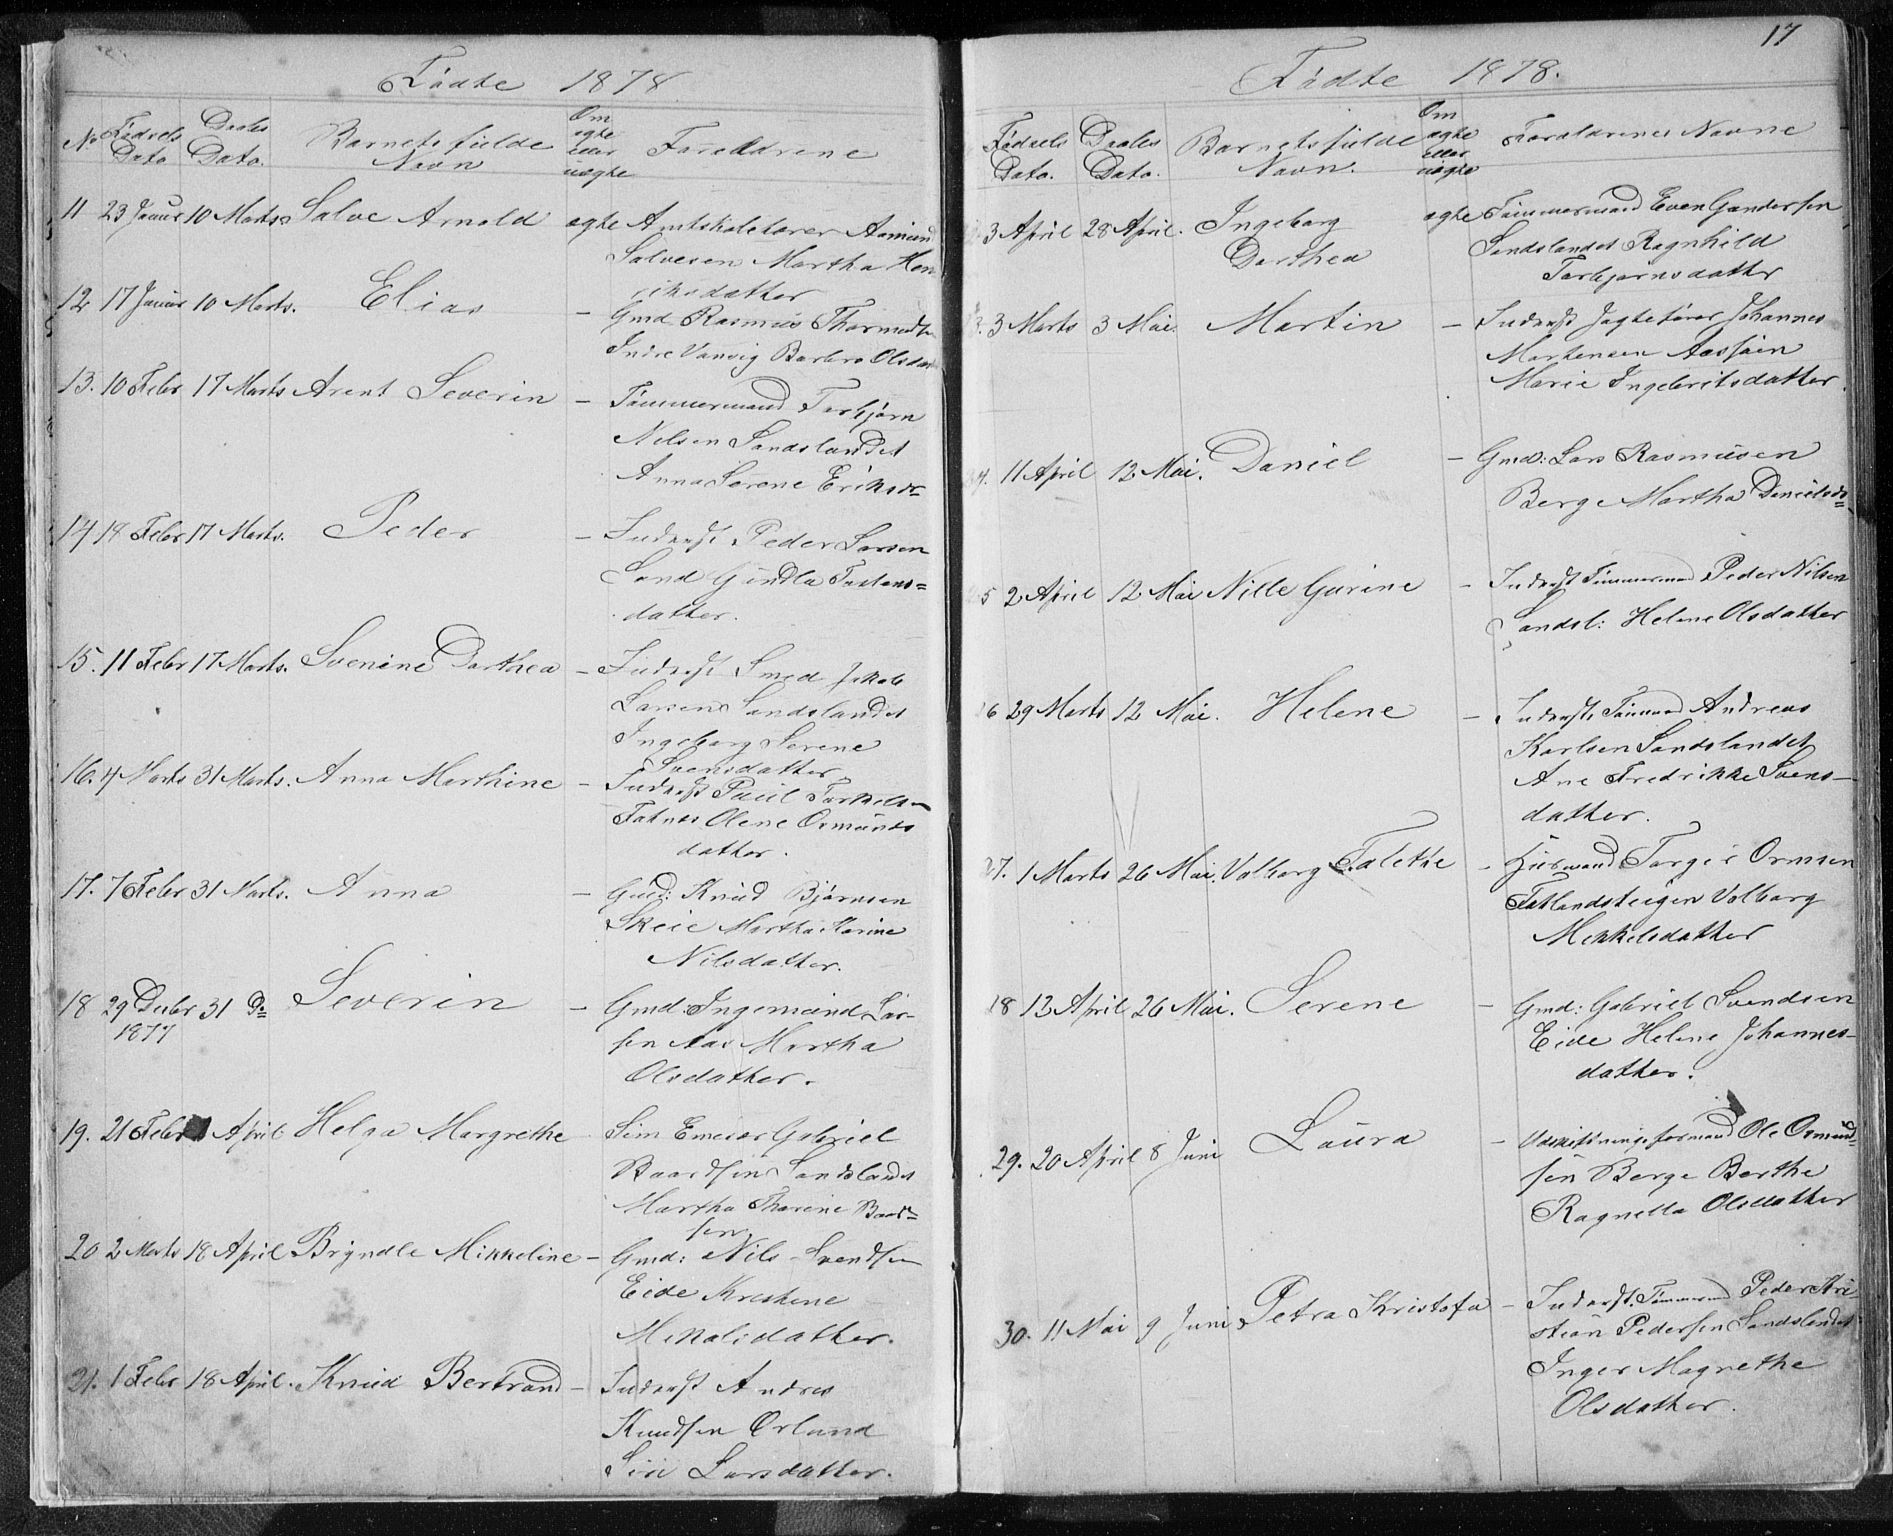 Fødte 1878
No Fødsels Dato Daabs Dato. Barnets fulde Navn Om ægte eller uægte Forældrene
11 23 Januar 10 Marts Salve Arnold ægte Amtskolelærer Aamund
Salvesen Martha Hen
riksdatter
12 17 Januar 10 Marts. Elias - Gmd Rasmus Thormods
Indre Vansvig Barbro Olsdat
13. 10 Febr 17 Marts Arent Severin - Tømmermand Torbjørn
Nilsen Sandslandet
Anna Serene Eriksd=
14 19 Febr 17 Marts. Peder - Inderst Peder Larsen
Sand Gundla Tostens=
datter.
15. 11 Febr 17 Marts. Svenine Dorthea - Inderst Smed Jakob
Larsen Sandslandet
Ingeborg Serene
Svensdatter
16. 4 Marts 31 Marts. Anna Marthine - Inderst Paul Torkels
Fatnes Olene Osmunds
datter.
17. 7 Febr 31 Marts. Anna - Gmd: Knud Bjørnsen
Skeie Martha Karine
Nilsdatter.
18 29 Decbr 31 Do Severin - Gmd: Ingemund Lar-
1877
sen Aas Martha
Olsdatter.
19. 21 Febr April Helga Margrethe Gabriel
Baardsen Sandslandet
Martha Thorine Baard=
sen
20 2 Marts 18 April Bryndle Mikkeline - Gmd: Nils Svendsen
Eide Kristene
Mikalsdatter.
21. 1 Febr 18 April. Knud Bertrand - Inderst Andres
Knudsen Ørland
Siri Larsdatter.
17
Fødte 1878.
Fødsels Dato. Daabs Dato. Barnets fulde Navn. Om ægte eller uægte Forældrenes Navne
3 April 28 April. Ingeborg ægte Tømmermand Even Gundersen
Dorthea Sandslandet Ragnhild
Torbjørnsdatter
3. 3 Marts 3 Mai Martin - Inderst Jagtefører Johannes
Mortensen Aasjøen
Marie Ingebritsdatter.
4. 11 April 12 Mai. Daniel - Gmd: Lars Rasmusen
Berge Martha Danielsd=
5 2 April 12 Mai Nille Gurine - Inderst Tømmermand Peder Nilsen
Sandsl: Helene Olsdatter
6 29 Marts 12 Mai. Helene - Inderst Tømmand Andreas
Karlsen Sandslandet
Ane Fredrikke Svens-
datter.
27. 1 Marts 26 Mai. Valborg Talethe - Husmand Torger Ormsen
Fatlandsteigen Valborg
Mikkelsdatter
18 12 April 26 Mai. Serene - Gmd: Gabriel Svendsen
Eide Helene Johannes-
datter.
29. 20 April 8 Juni Laura - Udskiftningsformand Ole Osmund=
sen Berge Berthe
Ragnella Olsdatter
30. 11 Mai 9 Juni Petra Kristofa - Inderst. Tømmermand Peder Kri
stian Pedersen Sandslandet
Inger Magrethe
Olsdatter.